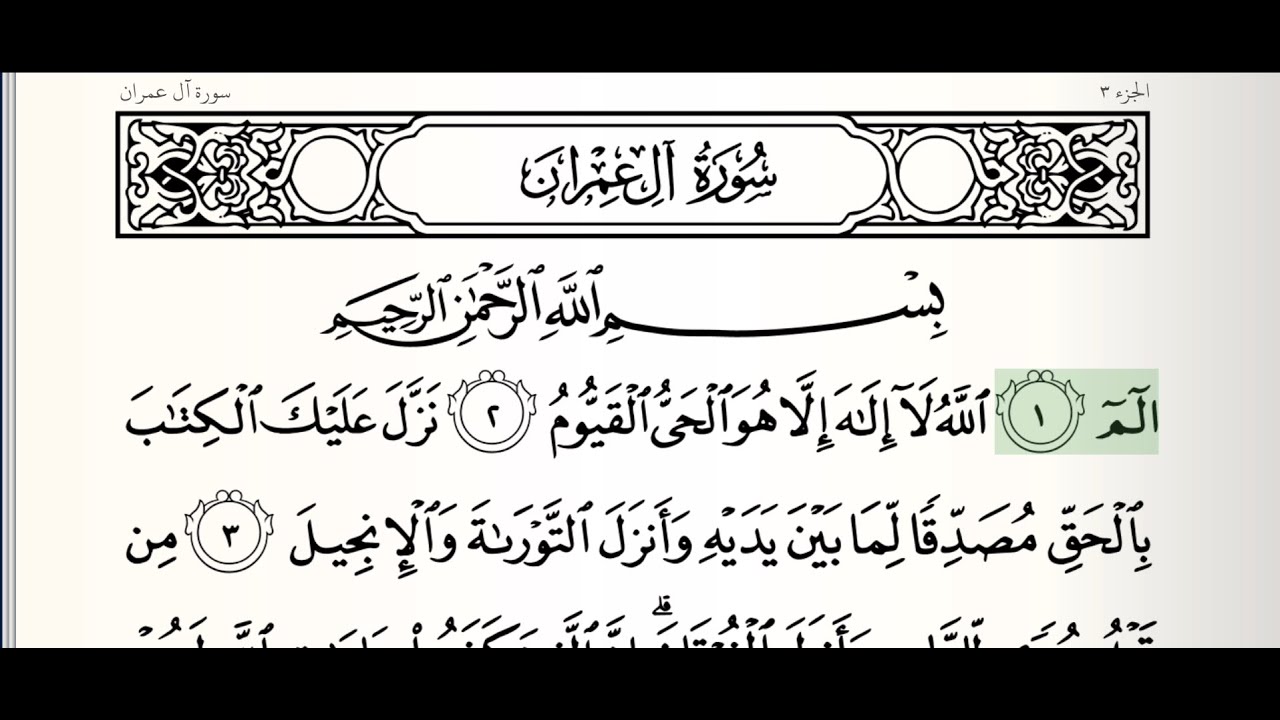 الجزء ٣
سورة آل عمران
سُورَةُ آلِ عِمْرَانَ
بِسْمِ ٱللَّهِ ٱلرَّحْمَٰنِ ٱلرَّحِيمِ
الٓمٓ ١ ٱللَّهُ لَآ إِلَٰهَ إِلَّا هُوَ ٱلْحَىُّ ٱلْقَيُّومُ ٢ نَزَّلَ عَلَيْكَ ٱلْكِتَٰبَ
بِٱلْحَقِّ مُصَدِّقًا لِّمَا بَيْنَ يَدَيْهِ وَأَنزَلَ ٱلتَّوْرَىٰةَ وَٱلْإِنجِيلَ ٣ مِن